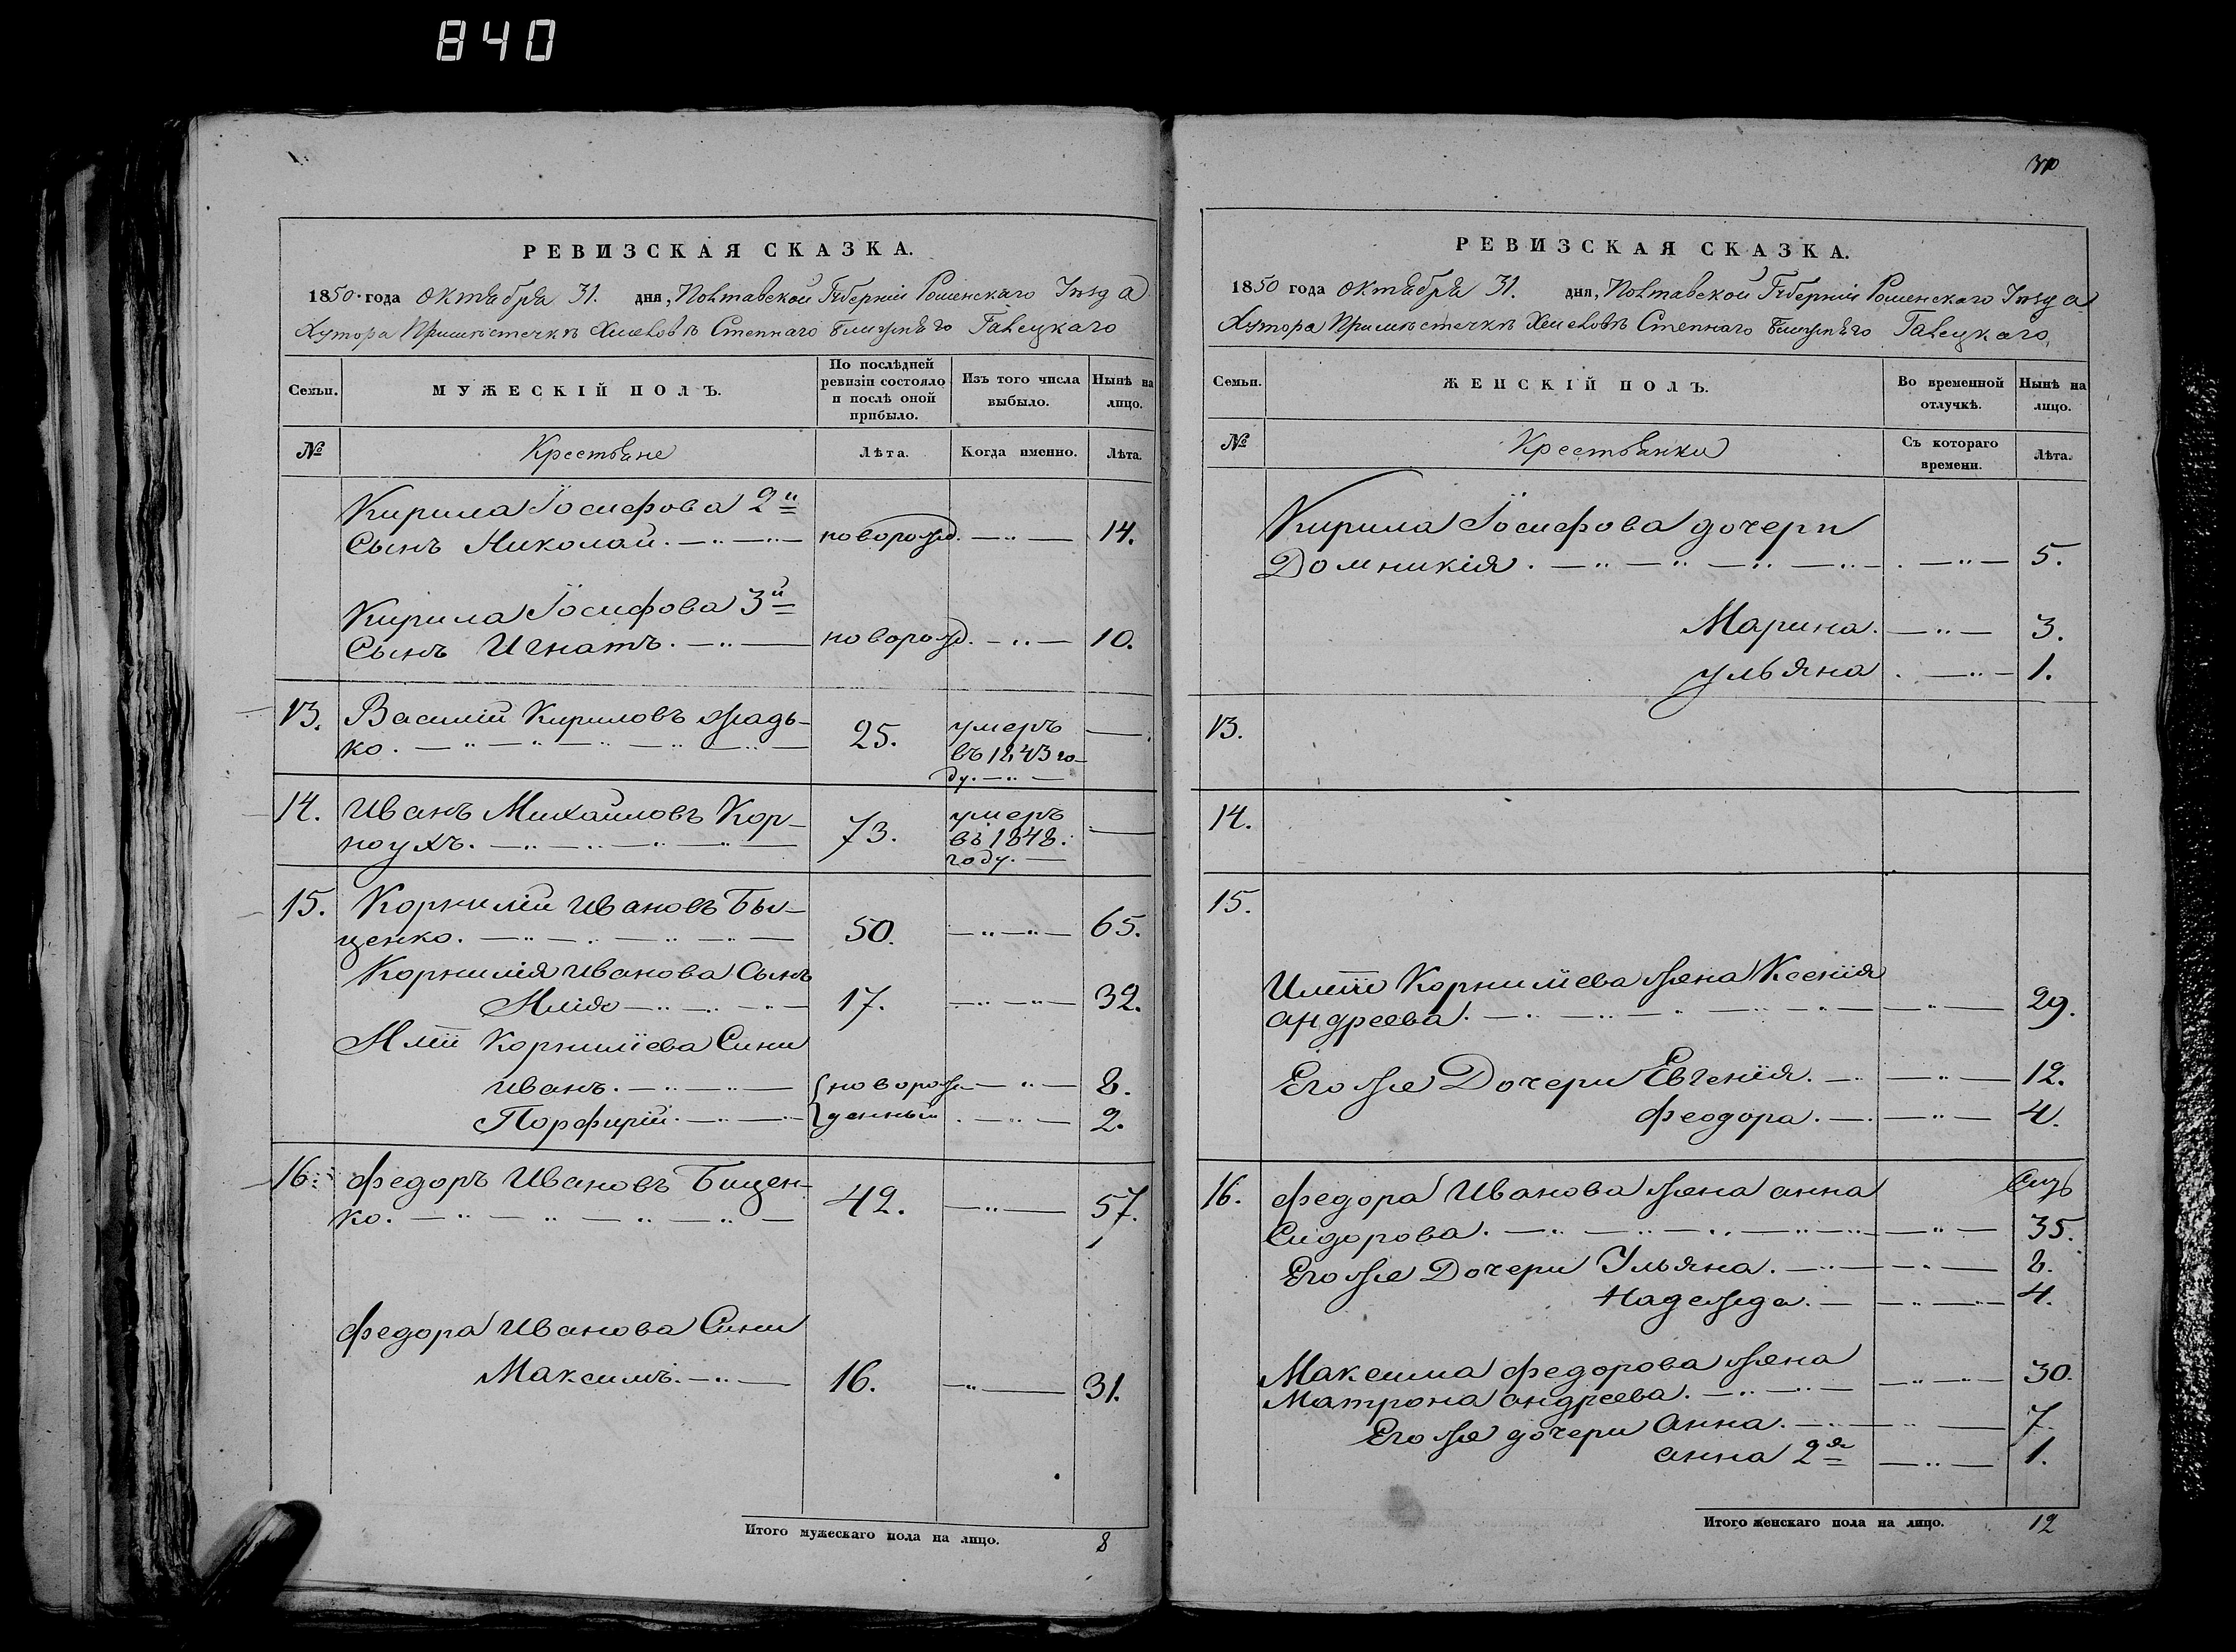 840
РЕВИЗСКАЯ СКАЗКА.
1850. года Октября 31. дня, Полтавской Губерніи Роменскаго
Хутора Степнаго Галецкаго
Семьи. МУЖЕСКІЙ ПОЛЪ. По послѣдней ревизіи состояло и послѣ оной прибыло. Изъ того числа выбыло. Нынѣ на лицо.
№ Крестьяне Лѣта. Когда именно. Лѣта.
Кирила Іосифова 2й
Сынъ Николай. новорожд. 14.
Кирила Іосифова 3й
Сынъ Игнатъ. новорожд. 10.
13. Василій Кириловъ
ко. 25. умеръ въ 1843 году.
14. Иванъ Михайловъ Кор-
ноухъ. 73. умеръ въ 1848. году.
15. Корнилій Ивановъ Бы-
ценко. 50. 65.
Корнилія Иванова Сынъ
Илія 17. 32.
Иліи Корниліева Сини
Иванъ. новорож- 8.
Порфирій. денныи 2.
16. Федоръ Ивановъ Бицен-
ко. 42. 57.
Федора Иванова Сини
Максимъ. 16. 31.
Итого мужескаго пола на лицо. 8
РЕВИЗСКАЯ СКАЗКА.
1850 года Октября 31. дня, Полтавской Губерніи Роменскаго
Хутора Степнаго Галецкаго
Семьи. ЖЕНСКІЙ ПОЛЪ. Во временной отлучкѣ. Нынѣ на лицо.
№ Крестьянки Съ котораго времени. Лѣта.
Кирила Іосифова дочери
Домникія. 5.
Марина. 3.
Ульяна. 1.
13.
14.
15.
Иліи Корниліева жена Ксенія
Андреева. 29.
Его же Дочери Евгенія. 12.
Феодора. 4.
16. Федора Иванова жена Анна
Сидорова. 35.
Его же Дочери Ульяна. 8.
Надежда. 4.
Максима Федорова жена
Матрона Андреева. 30.
Его же дочери Анна. 7.
Анна 2я 1.
Итого женскаго пола на лицо. 12